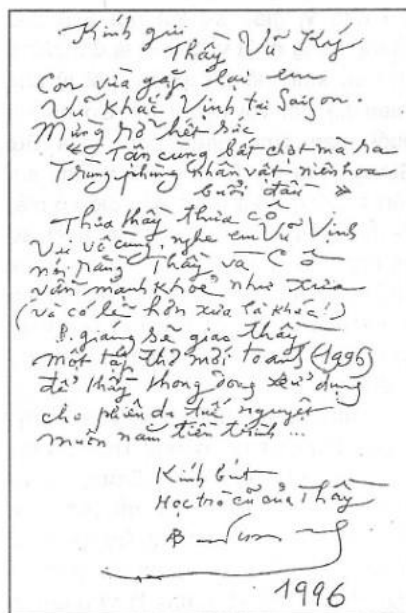 Kính gửi
Thầy Vũ Ký
Con vừa gặp lại em
Vũ Khắc Vinh tại Saigon.
Mừng rỡ hết sức
« Tân cùng bất chợt mà ra
Trùng phùng nhân vật niên hoa
buổi đầu »
Thưa thầy thưa cô
Vui vô cùng, nghe em Vũ Vịnh
nói rằng Thầy và Cô
vẫn mạnh khoẻ như xưa
(và có lẽ hơn xưa là khác!)
B. giáng sẽ giao thầy
một tập thơ mới toanh (1996)
để thầy thong dong xử dụng
cho phiên da tuế nguyệt
muôn năm tiến trình ...
Kính bút
Học trò cũ của Thầy
1996